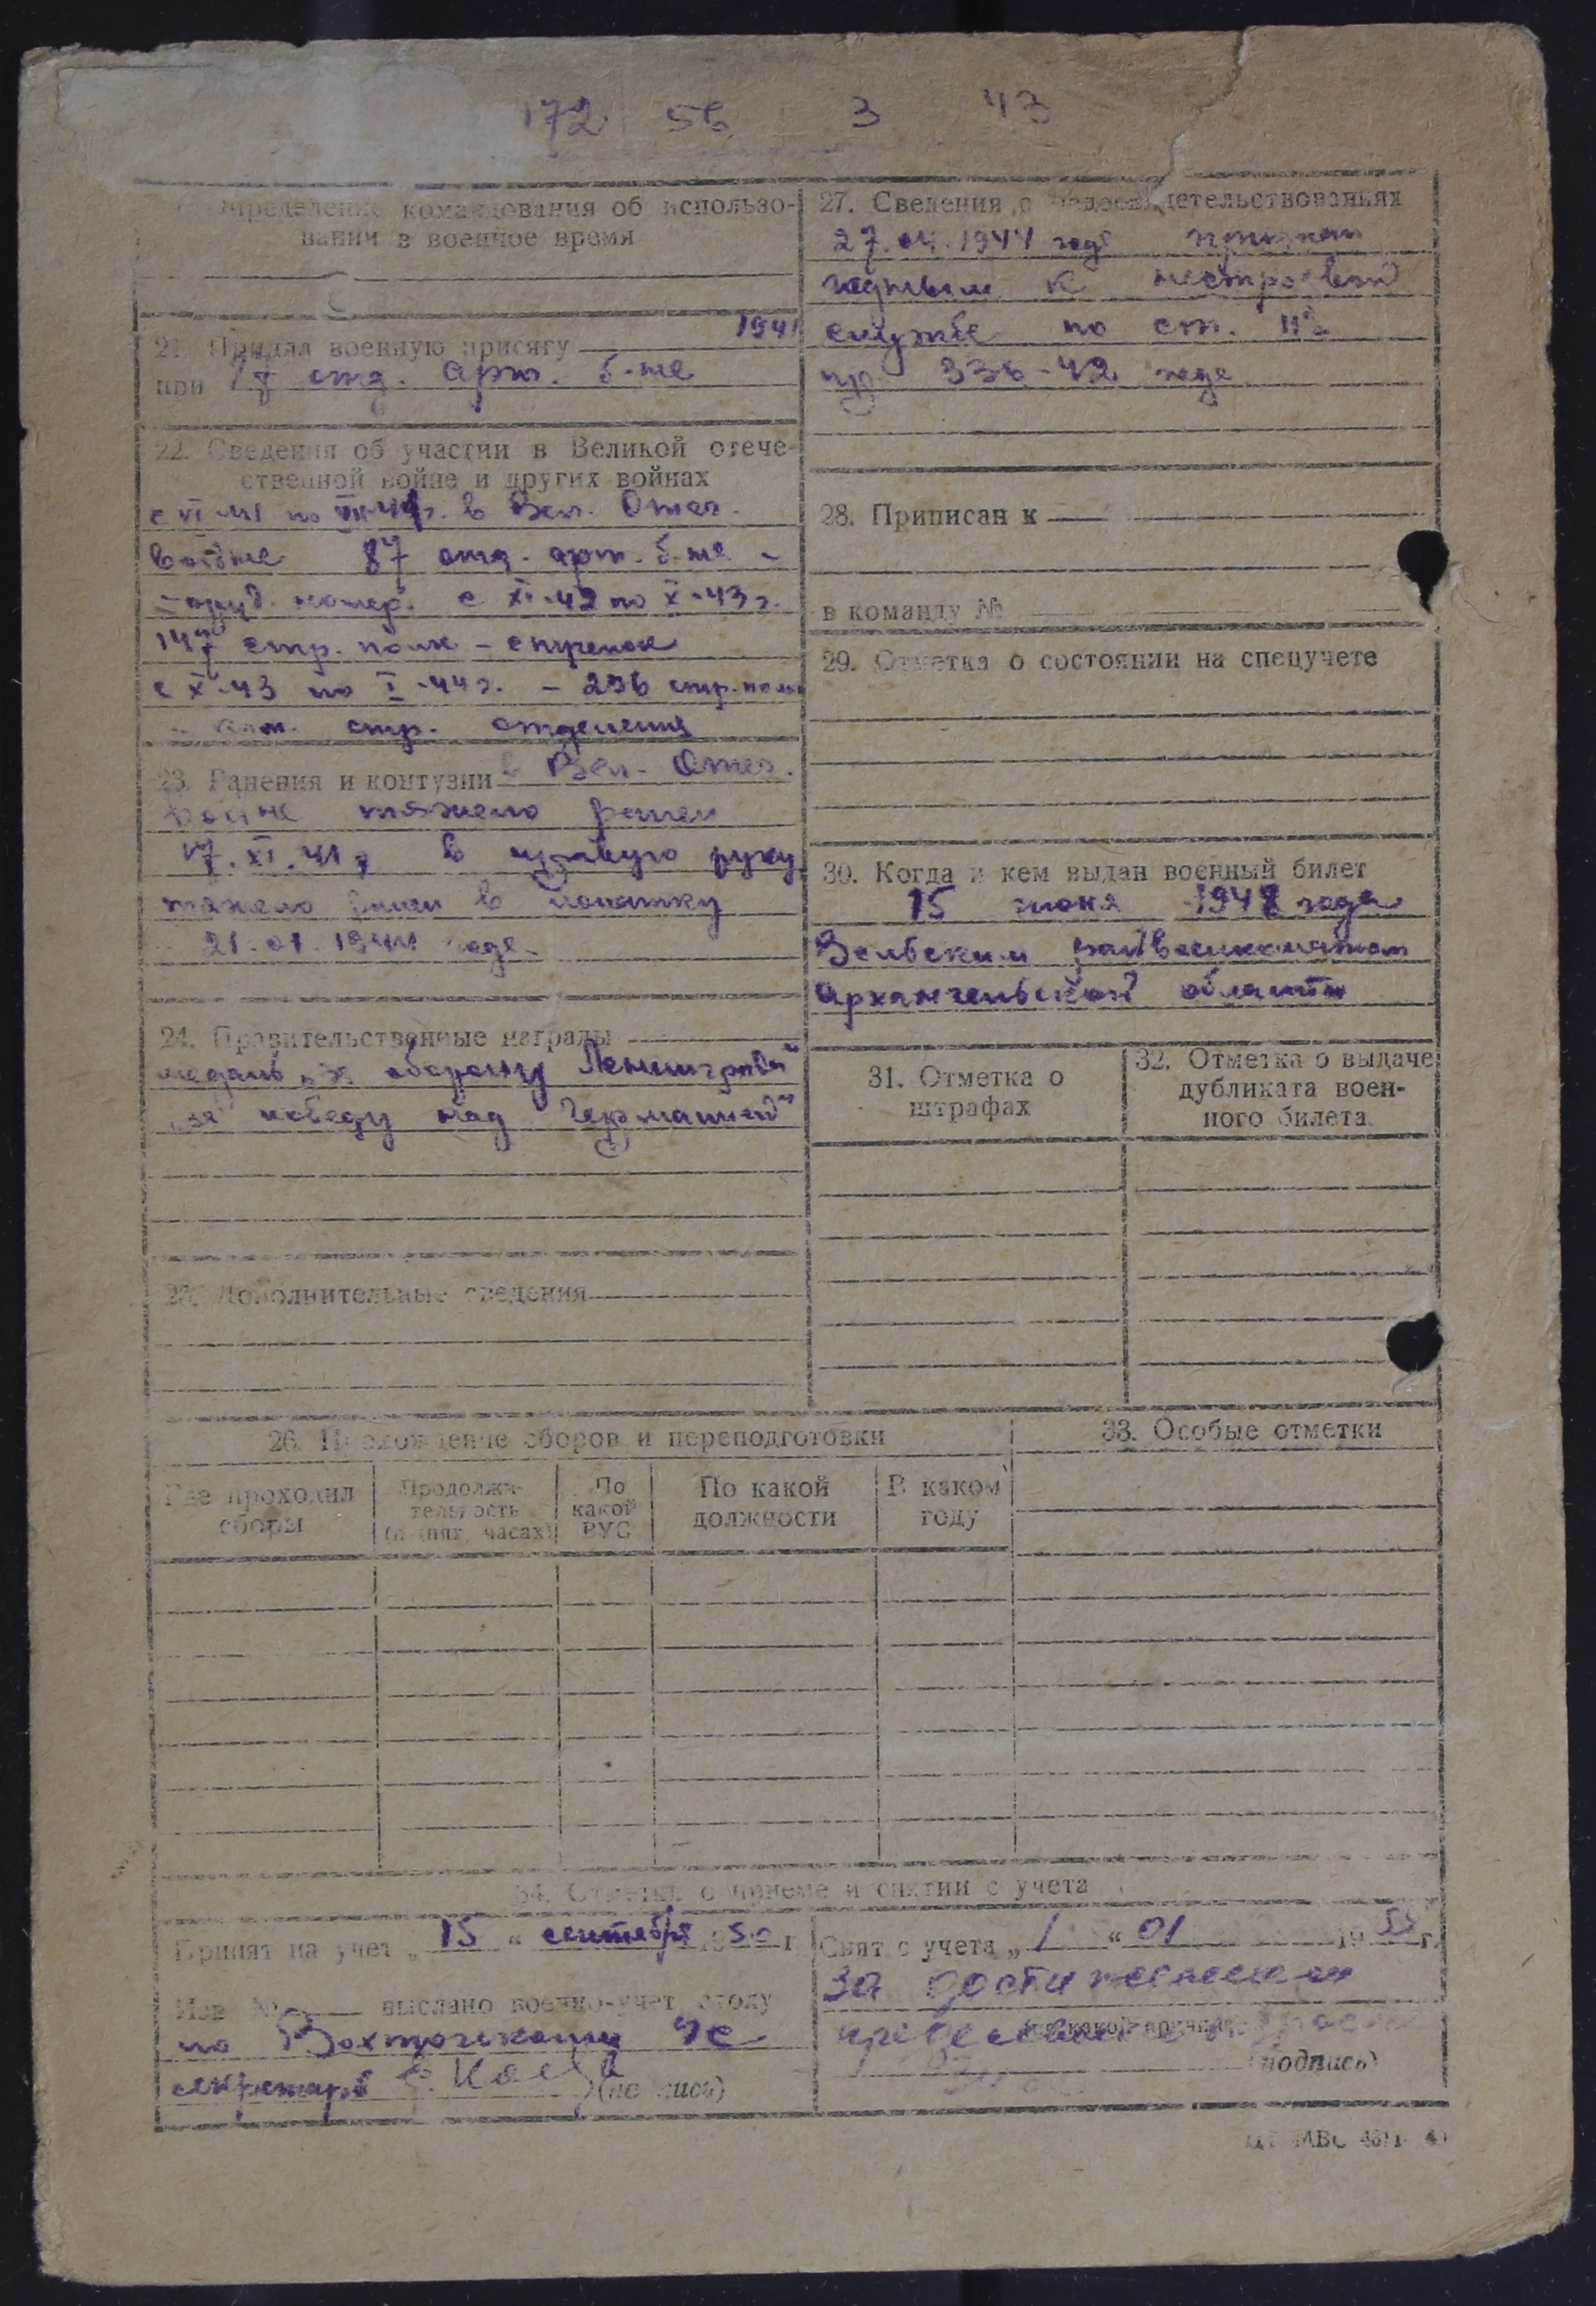 172 56 3 43
Определение командования об использо-
вании в военное время
21. Принял военную присягу 1941
при 87 отд. арт. б-не
22. Сведения об участии в Великой отече-
ственной войне и других войнах
с VI-41 по г. в Вел. Отеч.
войне 87 отд. арт. б-не -
- оруд. номер. с XI-42 по X-43 г.
147 стр. полк - стрелок
с X-43 по I-44 г. - 296 стр. полк
стр. отделения
23. Ранения и контузии в Вел. Отеч.
войне тяжело ранен
17.XI.41 г. в правую руку
тяжело ранен в лопатку
21.01.1944 года
24. Правительственные награды
медаль „за оборону Ленинграда“
„за победу над Германией“
25. Дополнительные сведения
27. Сведения о медосвидетельствованиях
27.04.1944 года признан
годным к нестроевой
службе по ст.
пр. 336-42 года
28. Приписан к
в команду №
29. Отметка о состоянии на спецучете
30. Когда и кем выдан военный билет
15 июня 1948 года
Вельским райвоенкоматом
Архангельской области
31. Отметка о
штрафах
32. Отметка о выдаче
дубликата воен-
ного билета
26. Прохождение сборов и переподготовки
Где проходил
сборы
Продолжи-
тельность
(в днях, часах)
По
какой
ВУС
По какой
должности
В каком
году
33. Особые отметки
34. Отметки о приеме и снятии с учета
Принят на учет „ 15 “ сентября 1950 г.
Изв. № — выслано военно-учет. столу
по
секретарь (подпись)
Снят с учета „ 1 “ 01 19 г.
за достижением
предельного возраста
(подпись)